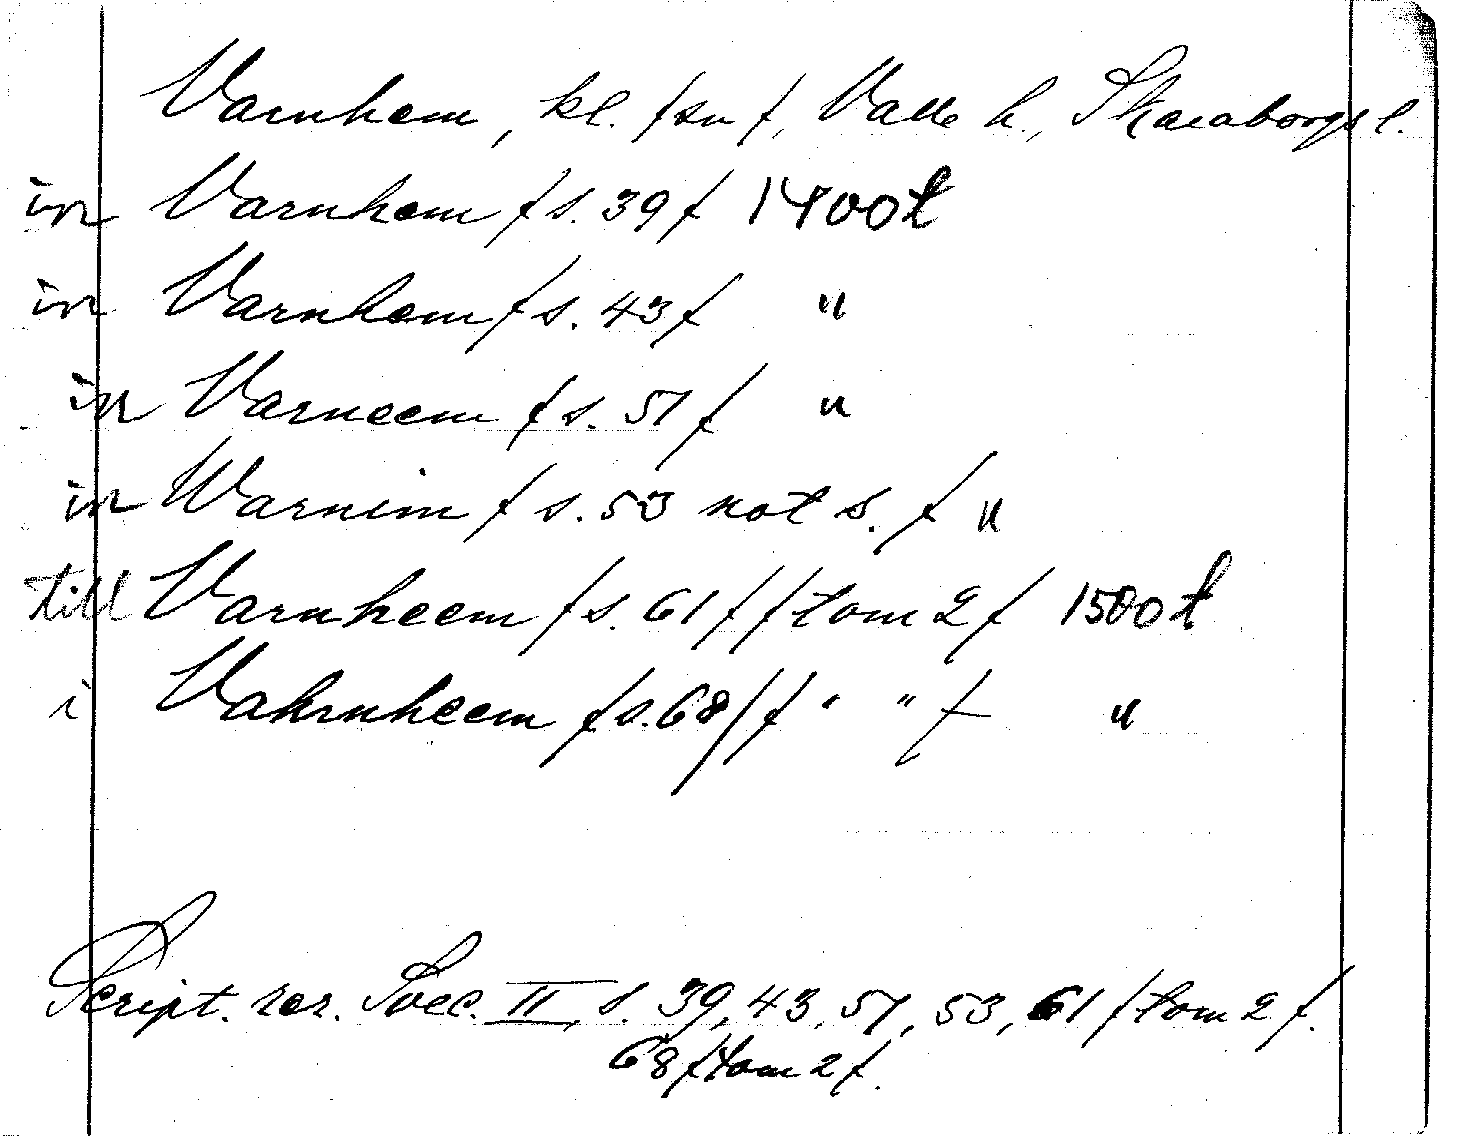 Varnhem, kl. /sn/, Valle h., Skaraborgs l.
in Varnhem /s. 39/ 1400t
in Varnhem /s. 43/ "
in Varneem /s. 51/ "
in Warnem /s. 53 not s./ "
till Varnheem /s. 61//tom 2/ 1500t
i Vahrnheem /s. 68// " " / "
Script. rer. Svec. II, s. 39, 43, 51, 53, 61 /tom 2/.
68 /tom 2/.